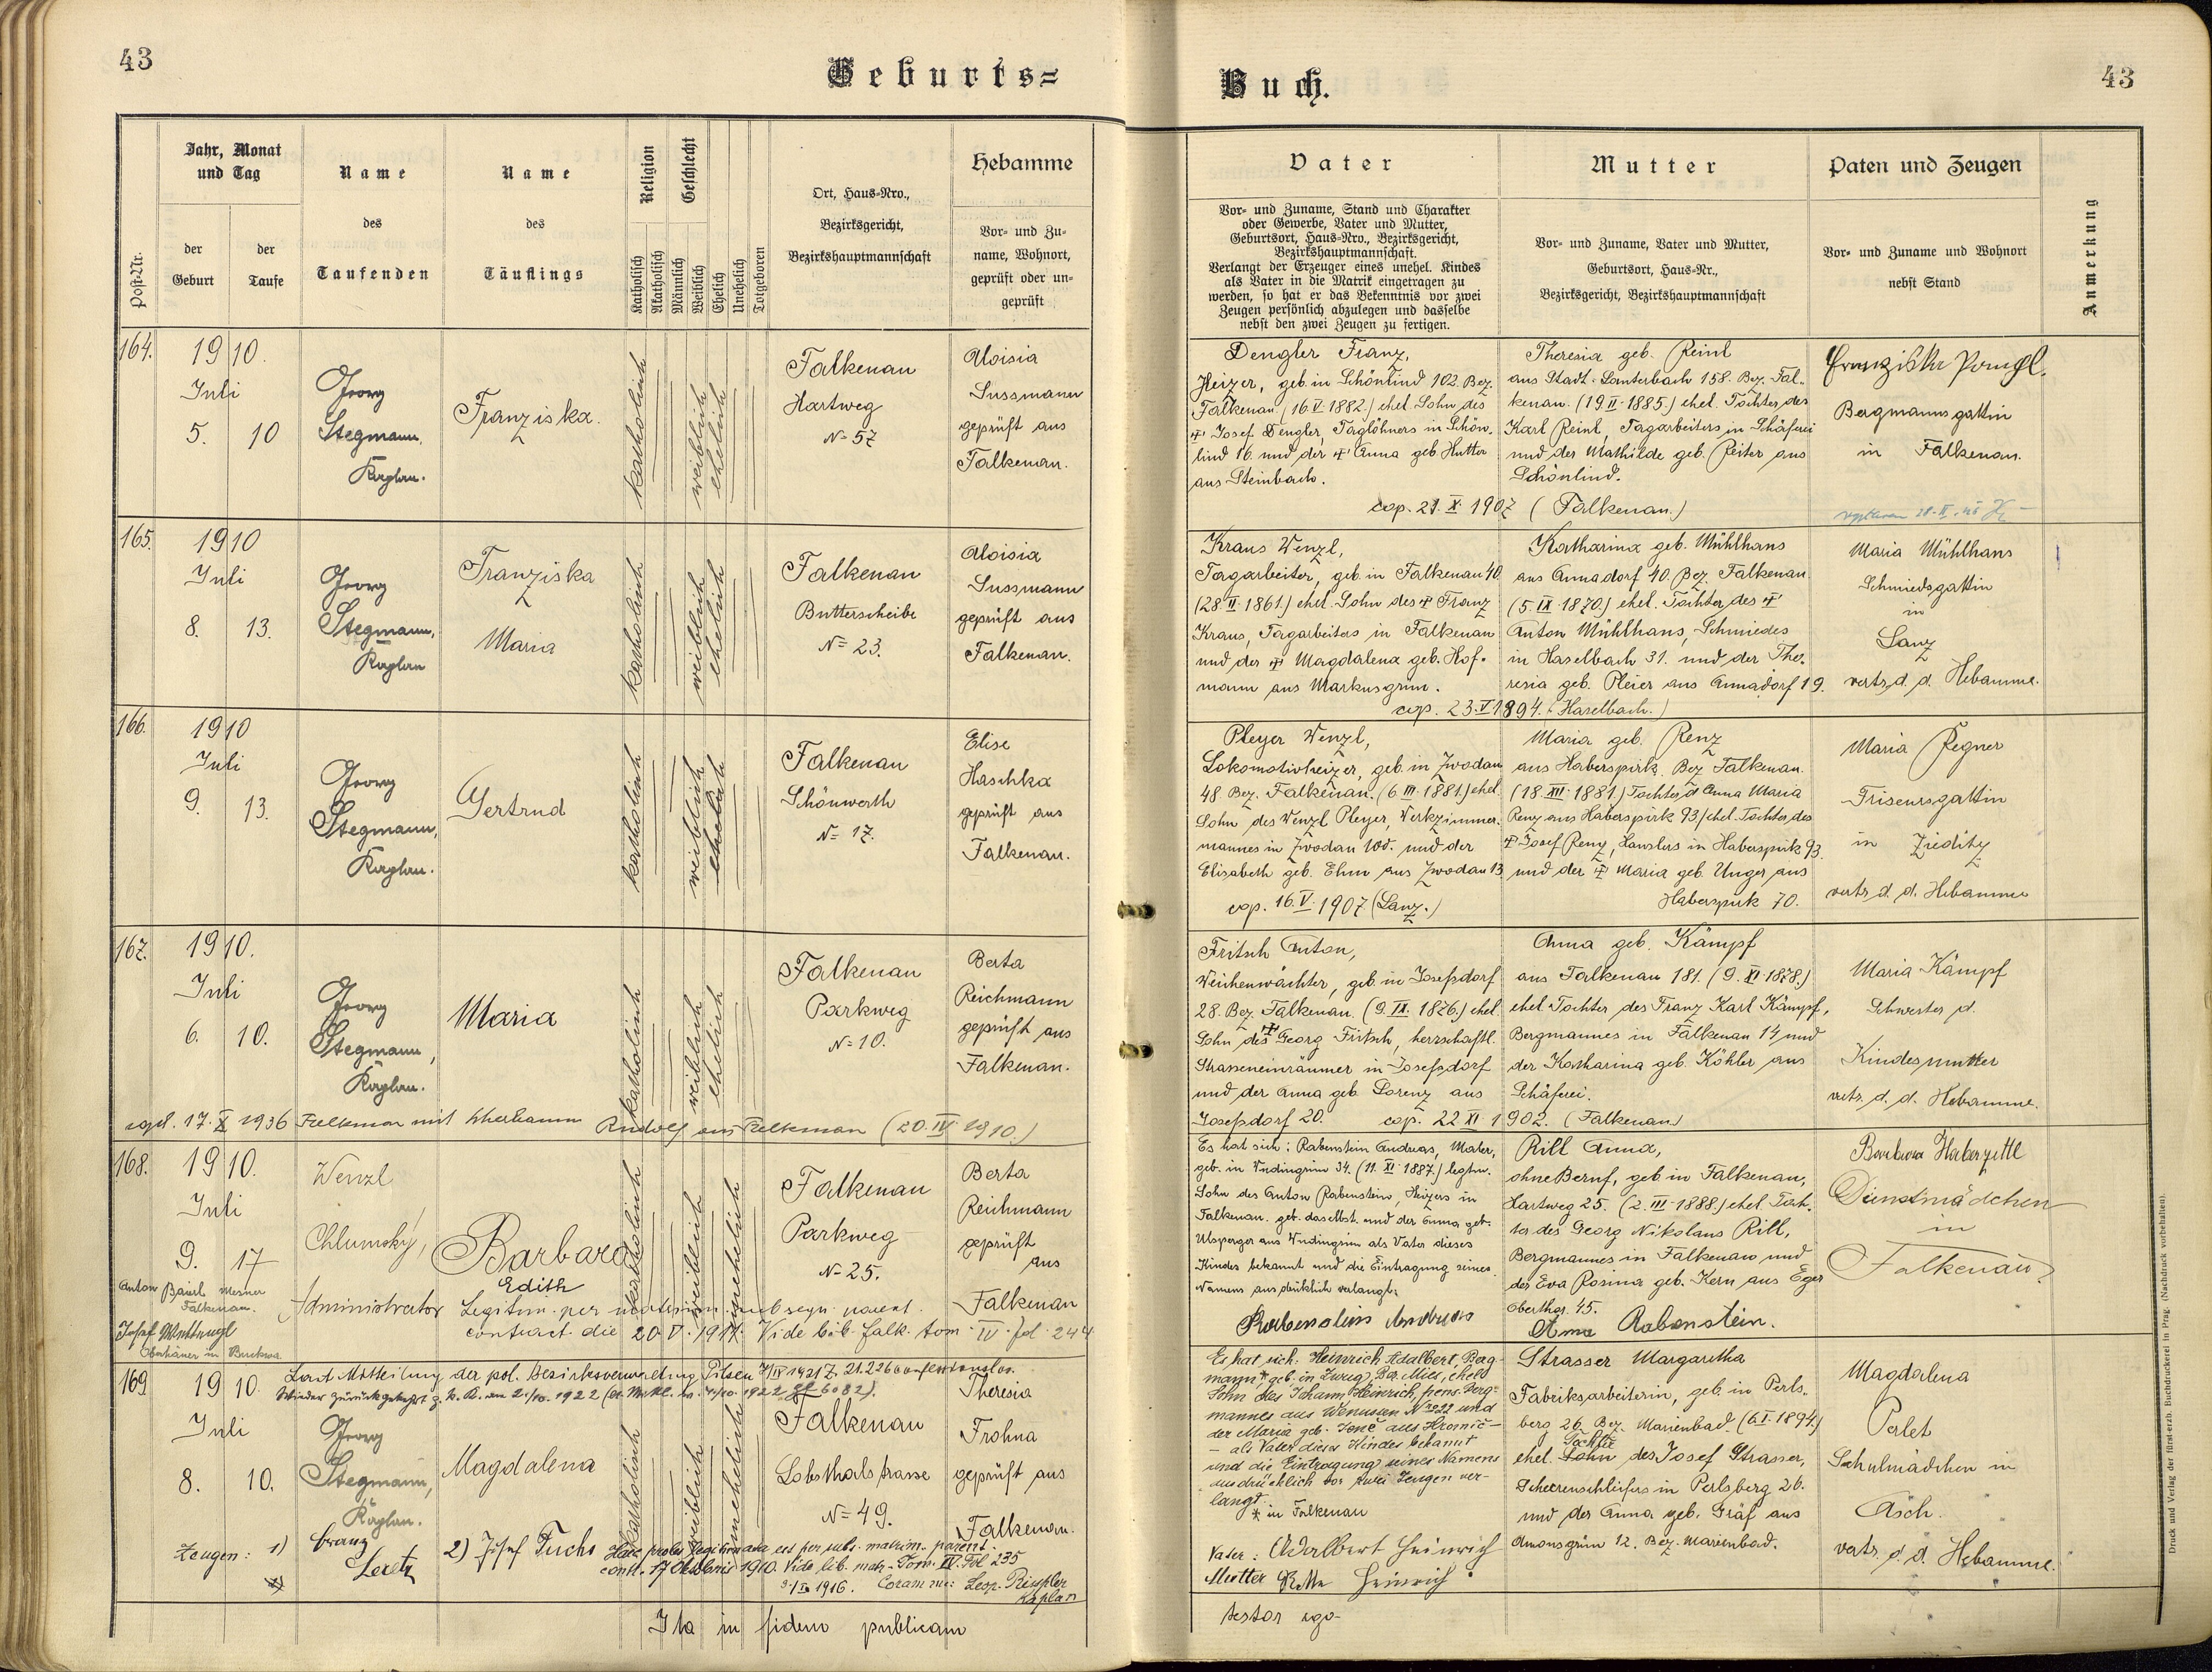 43
Geburts=
Buch.
43
Post-Nr.
Jahr, Monat
und Tag
der
Geburt
der
Taufe
Name
des
Taufenden
Name
des
Täuflings
Religion
Katholisch
Akatholisch
Geschlecht
Männlich
Weiblich
Ehelich
Unehelich
Totgeboren
Ort, Haus-Nro.,
Bezirksgericht,
Bezirkshauptmannschaft
Hebamme
Vor- und Zu-
name, Wohnort,
geprüft oder un-
geprüft
Vater
Vor- und Zuname, Stand und Charakter
oder Gewerbe, Vater und Mutter,
Geburtsort, Haus-Nro., Bezirksgericht,
Bezirkshauptmannschaft.
Verlangt der Erzeuger eines unehel. Kindes
als Vater in die Matrik eingetragen zu
werden, so hat er das Bekenntnis vor zwei
Zeugen persönlich abzulegen und dasselbe
nebst den zwei Zeugen zu fertigen.
Mutter
Vor- und Zuname, Vater und Mutter,
Geburtsort, Haus-Nr.,
Bezirksgericht, Bezirkshauptmannschaft
Paten und Zeugen
Vor- und Zuname und Wohnort
nebst Stand
Anmerkung
164.
1910.
Juli
5. 10
Georg
Stegmann,
Kaplan.
Franziska.
katholisch
weiblich
ehelich
Falkenau
Hartweg
N= 57
Aloisia
Sussmann
geprüft aus
Falkenau.
Dengler Franz,
Heizer, geb. in Schönlind 102. Bez.
Falkenau (16.V.1882.) ehel. Sohn des
Josef Dengler, Taglöhners in Schön-
lind 16. und der Anna geb. Hutter
aus Steinbach.
Theresia geb. Reinl
aus Stadt. Lauterbach 158. Bez. Fal-
kenau. (19.II.1885.) ehel. Tochter des
Karl Reinl, Tagarbeiters in Schäferei
und der Mathilde geb. Reiter aus
Schönlind.
cop. 21.X.1907 (Falkenau.)
Franziska
Bergmannsgattin
in Falkenau.
165.
1910
Juli
8. 13.
Georg
Stegmann,
Kaplan
Franziska
Maria
katholisch
weiblich
ehelich
Falkenau
Butterscheibe
N= 23.
Aloisia
Sussmann
geprüft aus
Falkenau.
Kraus Wenzl,
Tagarbeiter, geb. in Falkenau 40
(28.II.1861.) ehel. Sohn des Franz
Kraus, Tagarbeiters in Falkenau
und der Magdalena geb. Hof-
mann aus Markusgrün.
Katharina geb. Mühlhans
aus Annadorf 40. Bez. Falkenau.
(5.IX.1870.) ehel. Tochter des
Anton Mühlhans, Schmiedes
in Haselbach 31. und der The-
resia geb. Pleier aus Annadorf 19.
cop. 23.V.1894. (Haselbach.)
Maria Mühlhans
Schmiedsgattin
in
Lanz
vertr. d. d. Hebamme.
166.
1910
Juli
9. 13.
Georg
Stegmann,
Kaplan.
Gertrud
katholisch
weiblich
ehelich
Falkenau
Schönwerth
N= 17.
Elise
Haschka
geprüft aus
Falkenau.
Pleyer Wenzl,
Lokomotivheizer, geb. in Zwodau
48 Bez. Falkenau. (6.III.1881.) ehel.
Sohn des Wenzl Pleyer, Werkzimmer-
mannes in Zwodau 105. und der
Elisabeth geb. Ehm aus Zwodau 13
cop. 16.V.1907 (Lanz.)
Maria geb. Renz
aus Haberspirk, Bez. Falkenau.
(18.III.1881.) Tochter d. Anna Maria
Renz aus Haberspirk 93/ehel. Tochter des
Josef Renz, Hauslers in Haberspirk 93.
und der Maria geb. Unger aus
Haberspirk 70.
Maria Regner
Friseursgattin
in Zieditz
vertr. d. d. Hebamme
167.
1910.
Juli
6. 10.
Georg
Stegmann,
Kaplan.
Maria
katholisch
weiblich
ehelich
Falkenau
Parkweg
N= 10.
Berta
Reichmann
geprüft aus
Falkenau.
Fritsch Anton,
Weichenwächter, geb. in Josefsdorf
28. Bez. Falkenau. (9.IX.1876.) ehel.
Sohn des Georg Fritsch, herrschaftl.
Strasseneinräumer in Josefsdorf
und der Anna geb. Lorenz aus
Josefsdorf 20.
Anna geb. Kämpf
aus Falkenau 181. (9.XI.1878.)
ehel. Tochter des Franz Karl Kämpf,
Bergmannes in Falkenau 14 und
der Katharina geb. Köhler aus
Schäferei.
cop. 22.XI.1902. (Falkenau)
Maria Kämpf
Schwester d.
Kindesmutter
vertr. d. d. Hebamme.
17.X.1936 Falkenau mit
Rudolf aus Falkenau (20.IV.1910.)
168.
1910.
Juli
9. 17
Wenzl
Chlumsky,
Administrator
Barbara
Edith
katholisch
weiblich
unehelich
Falkenau
Parkweg
N= 25.
Berta
Reichmann
geprüft
aus
Falkenau
Anton Bäuerl Mesner
Falkenau.
Josef
Oberhäuer in Buckwa
Legitim. per matrim. subsequ. parent.
contract. die 20.V.1911. Vide lib. falk. tom. IV. fol. 244
Es hat sich: Rabenstein Andreas, Maler,
geb. in Nudingrün 34. (11.XI.1887.) legtm.
Sohn des Anton Rabenstein, Heizers in
Falkenau. geb. daselbst. und der Anna geb.
Ulsperger aus Nudingrün als Vater dieses
Kindes bekannt und die Eintragung seines
Namens ausdrücklich verlangt.
Rabenstein Andreas
Rill Anna,
ohne Beruf, geb. in Falkenau,
Hartweg 25. (2.III.1888.) ehel. Toch-
ter des Georg Nikolaus Rill,
Bergmannes in Falkenau und
der Eva Rosina geb. Kern aus Eger
Oberthgr. 45.
Anna Rabenstein.
Barbara Haberzettl
Dienstmädchen
in
Falkenau.
169
1910.
Juli
8. 10.
Laut Mitteilung der pol. Bezirksverwaltung Pilsen
Wieder zurückgekehrt z. k. K. am 2./10. 1922
Georg
Stegmann,
Kaplan.
Magdalena
katholisch
weiblich
unehelich
Falkenau
Lobsthalstrasse
N= 49.
Theresia
Frohna
geprüft aus
Falkenau.
Zeugen: 1) Franz
2) Josef Fuchs
Haec proles legitimata est per subs. matrim. parent.
contr. 17 Oktobris 1910. Vide lib. matr. Tom. IV. Fol 235
1916. Coram me: Leop.
Kaplan
Es hat sich: Heinrich Adalbert, Berg-
mann, * geb. in Zwug, Bez. Mies, ehel.
Sohn des Johann Heinrich, pens. Berg-
mannes aus Wenusen No 22 und
der Maria geb. aus
- als Vater dieses Kindes bekannt
und die Eintragung seines Namens
ausdrücklich vor zwei Zeugen ver-
langt.
* in Falkenau
Vater: Adalbert Heinrich
Mutter Heinrich
Strasser Margaretha
Fabriksarbeiterin, geb. in Perls-
berg 26. Bez. Marienbad. (6.I.1894.)
Tochter
ehel. Sohn des Josef Strasser,
Scheerenschleifers in Perlsberg 26.
und der Anna geb. Gräf aus
Amonsgrün 12. Bez. Marienbad.
Magdalena
Perlet
Schulmädchen in
Asch.
vertr. d. d. Hebamme.
Ita in fidem publicam
testor ego-
Druck und Verlag der fürst-erzb. Buchdruckerei in Prag. (Nachdruck vorbehalten).